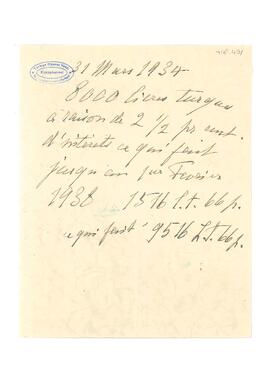 31 Mars 1934
8000 livres turques
à raison de 2 1/2 pr cent
d'intérêts ce qui fait
jusqu'au 1er Fevrier
1938 1516 L.t. 66 p.
ce qui fait 9516 L.T. 66 p.